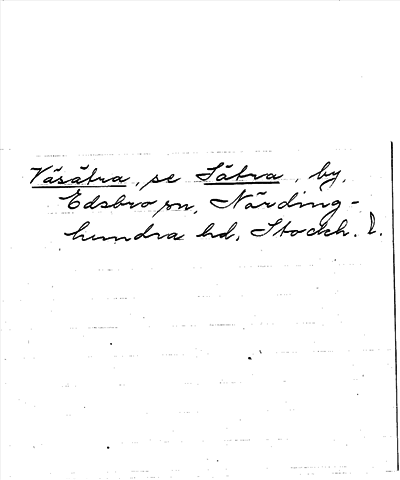 Väsätra, se Sätra, by,
Edsbro sn, Närding-
hundra hd, Stockh. l.